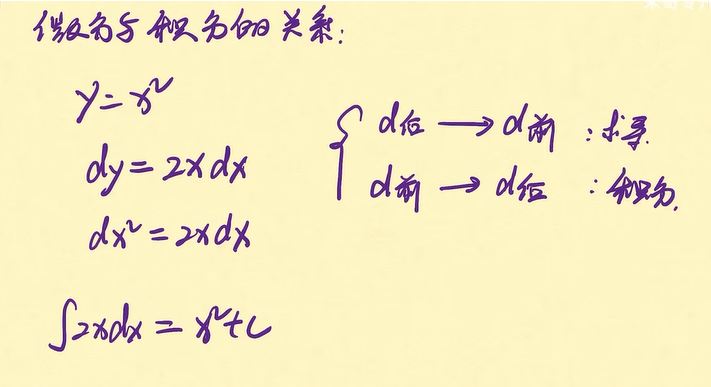 微分与积分的关系:
y=x²
dy=2xdx
dx²=2xdx
∫2xdx=x²+C
{ d后→d前:求导
d前→d后:积分.